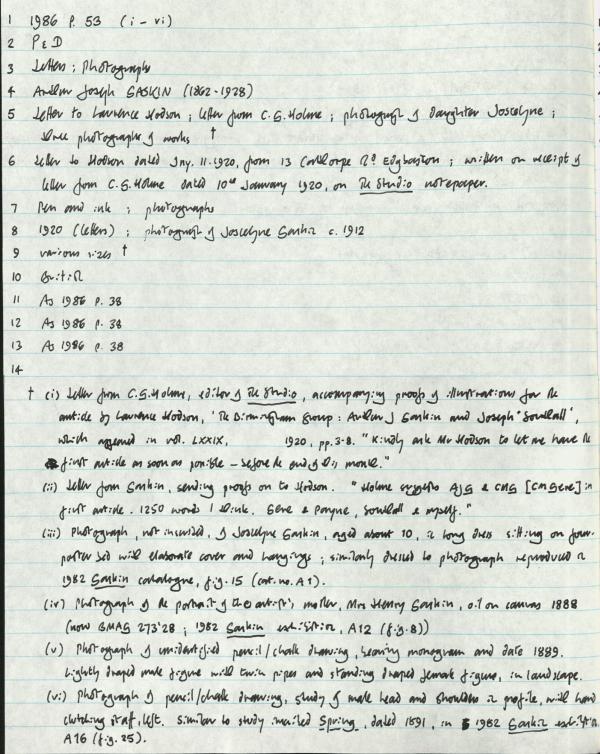 1 1986 P. 53 (i - vi)
2 P & D
3 Letters ; photographs
4 Arthur Joseph GASKIN (1862-1928)
5 Letter to Lawrence Hodson ; letter from C.G. Holme ; photograph of daughter Joscelyne ;
three photographs of works †
6 Letter to Hodson dated Jny. 11. 1920, from 13 Calthorpe Rd. Edgbaston ; written on receipt of
letter from C.G. Holme dated 10th January 1920, on The Studio notepaper.
7 Pen and ink ; photographs
8 1920 (letters) ; photograph of Joscelyne Gaskin c. 1912
9 various sizes †
10 British
11 As 1986 P. 38
12 As 1986 P. 38
13 As 1986 P. 38
14
† (i) Letter from C.G. Holme, editor of The Studio, accompanying proofs of illustrations for the
article by Lawrence Hodson, 'The Birmingham Group : Arthur J Gaskin and Joseph Southall',
which appeared in vol. LXXIX, 1920, pp. 3-8. "Kindly ask Mr Hodson to let me have the
first article as soon as possible - before the end of this month."
(ii) Letter from Gaskin, sending proofs on to Hodson. "Holme suggests AJG & CMG [CM Gere] in
first article. 1250 words I think. Gere & Payne, Southall & myself."
(iii) Photograph, not inscribed, of Joscelyne Gaskin, aged about 10, in long dress sitting on four-
poster bed with elaborate cover and hangings ; similarly dressed to photograph reproduced in
1982 Gaskin catalogue, fig. 15 (cat. no. A1).
(iv) Photograph of the portrait of the artist's mother, Mrs Henry Gaskin, oil on canvas 1888
(now BMAG 273'28 ; 1982 Gaskin exhibition, A12 (fig. 8))
(v) Photograph of unidentified pencil/chalk drawing, bearing monogram and date 1889.
Lightly draped male figure with twin pipes and standing draped female figure, in landscape.
(vi) Photograph of pencil/chalk drawing, study of male head and shoulders in profile, with hand
clutching staff, left. Similar to study entitled Spring, dated 1891, in 1982 Gaskin exhibition
A16 (fig. 25).